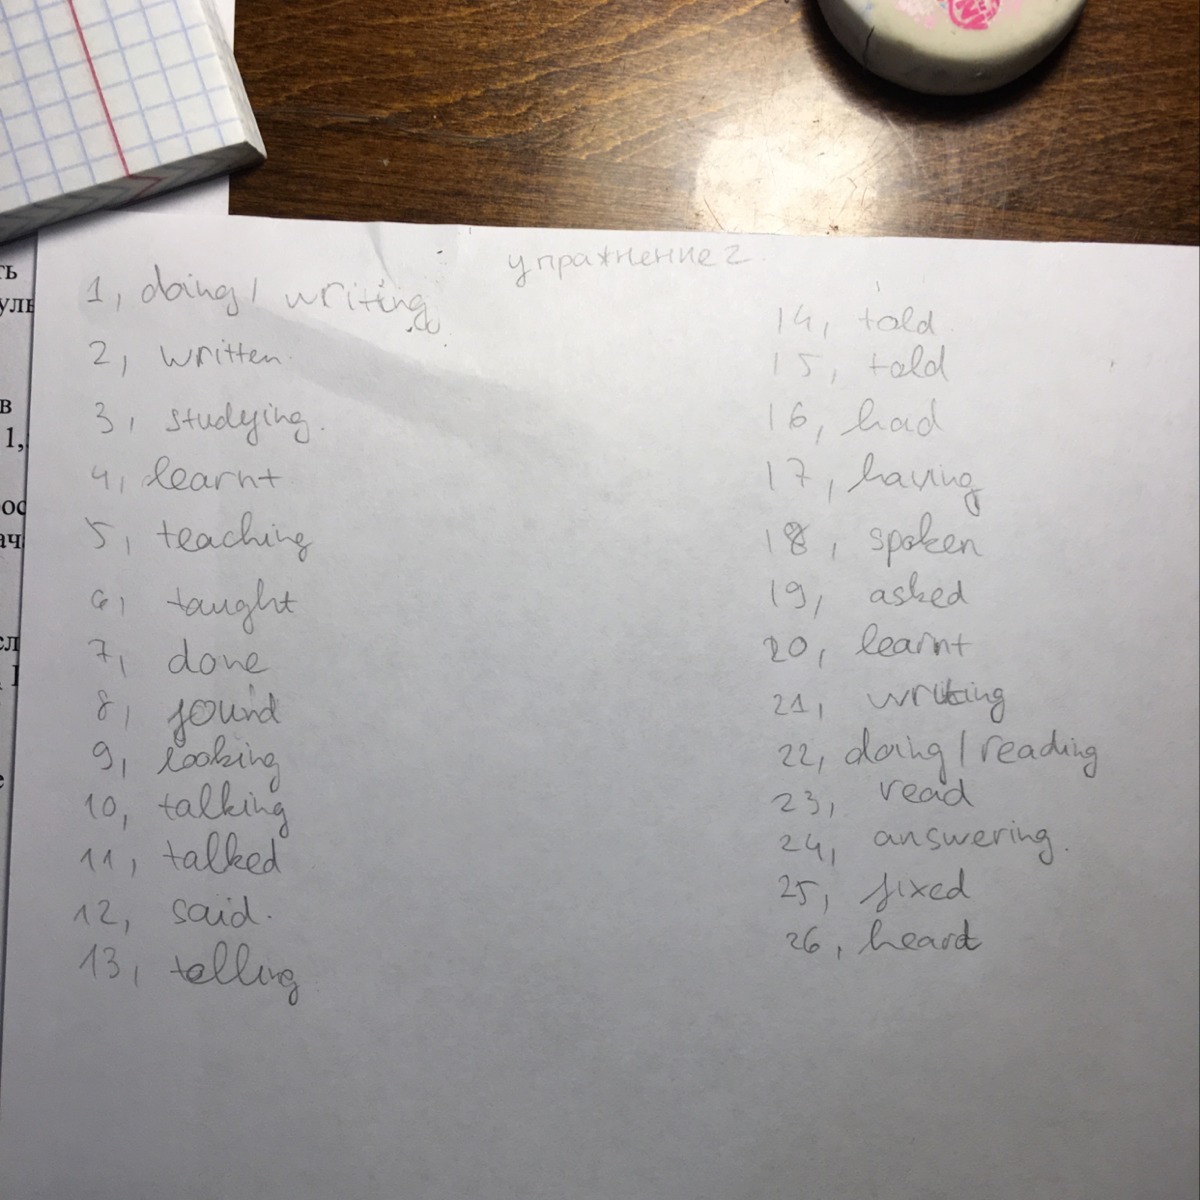 упражнение 2
1, doing / writing
2, written
3, studying.
4, learnt
5, teaching
6, taught
7, done
8, found
9, looking
10, talking
11, talked
12, said.
13, telling
14, told
15, told
16, had
17, having
18, spoken
19, asked
20, learnt
21, writing
22, doing / reading
23, read
24, answering.
25, fixed
26, heard
ть
в
1,